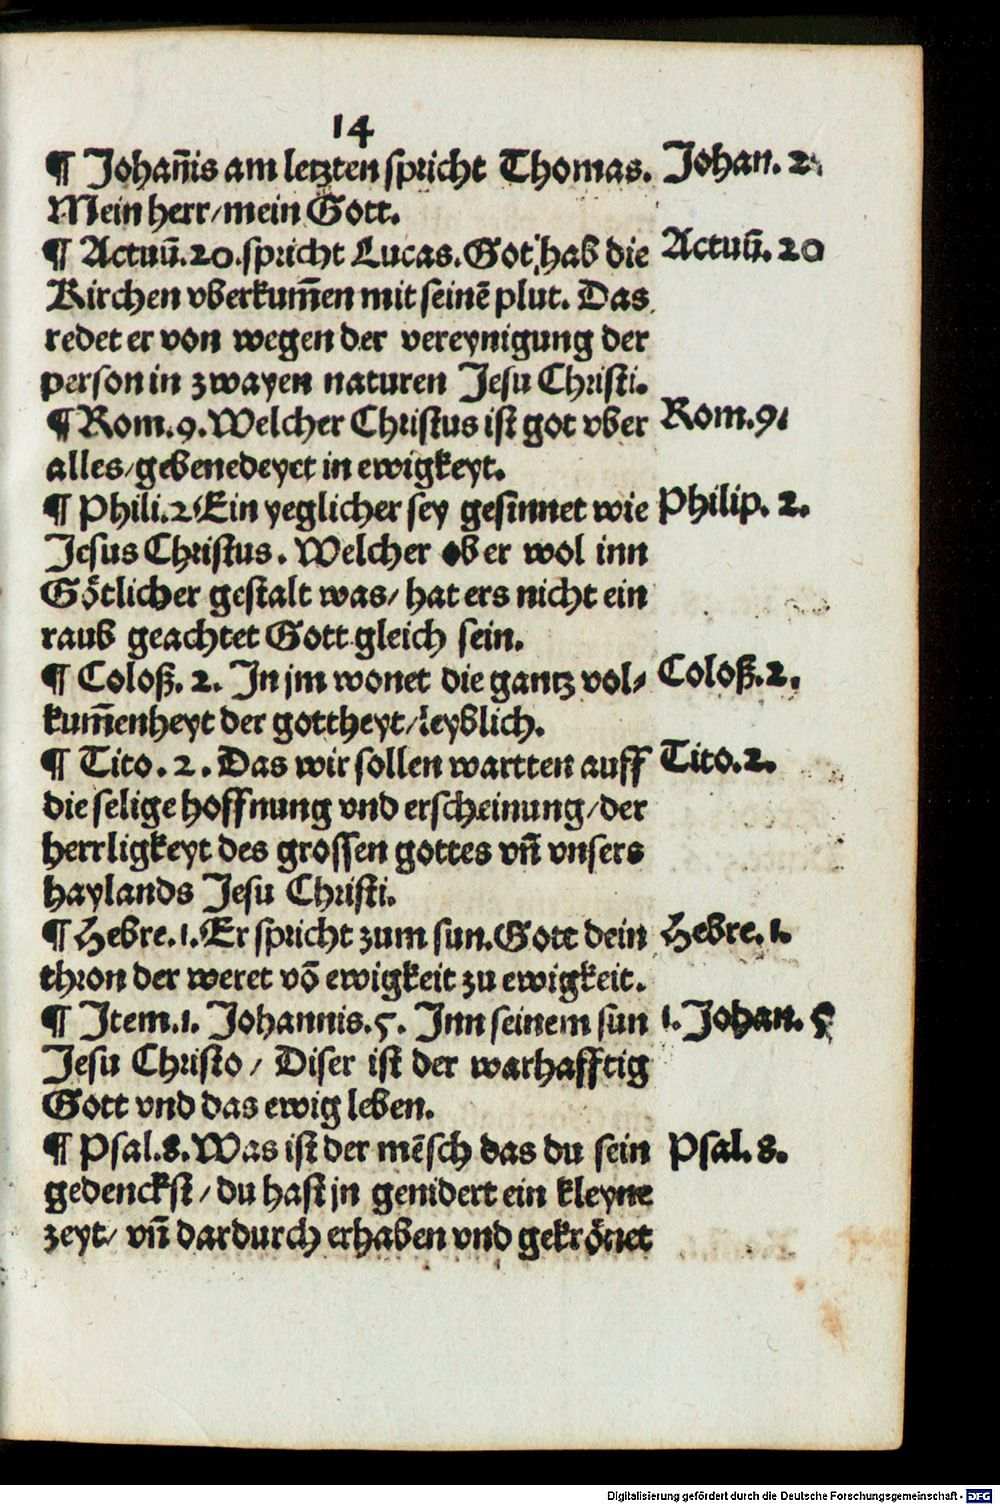 14
¶ Johan̄is am letzten spricht Thomas. Johan. 2
Mein herr/mein Gott.
¶ Actuū.20.spricht Lucas. Got hab die Actuū. 20
Kirchen vberkum̄en mit seinē plut. Das
redet er von wegen der vereynigung der
person in zwayen naturen Jesu Christi.
¶ Rom.9. Welcher Christus ist got vber Rom.9.
alles/gebenedeyet in ewigkeyt.
¶ Phili.2. Ein yeglicher sey gesinnet wie Philip. 2.
Jesus Christus. Welcher ob er wol inn
Götlicher gestalt was/ hat ers nicht ein
raub geachtet Gott gleich sein.
¶ Coloß. 2. In jm wonet die gantz vol⸗ Coloß.2.
kum̄enheyt der gottheyt/leyblich.
¶ Tito. 2. Das wir sollen wartten auff Tito.2.
die selige hoffnung vnd erscheinung/der
herrligkeyt des grossen gottes vn̄ vnsers
haylands Jesu Christi.
¶ Hebre.1. Er spricht zum sun. Gott dein Hebre. 1.
thron der weret vō ewigkeit zu ewigkeit.
¶ Item.1. Johannis.5. Inn seinem sun 1. Johan. 5
Jesu Christo/ Diser ist der warhafftig
Gott vnd das ewig leben.
¶ Psal.8. Was ist der mēsch das du sein Psal. 8.
gedenckst/du hast jn genidert ein kleyne
zeyt/ vn̄ dardurch erhaben vnd gekrönet
Digitalisierung gefördert durch die Deutsche Forschungsgemeinschaft - DFG